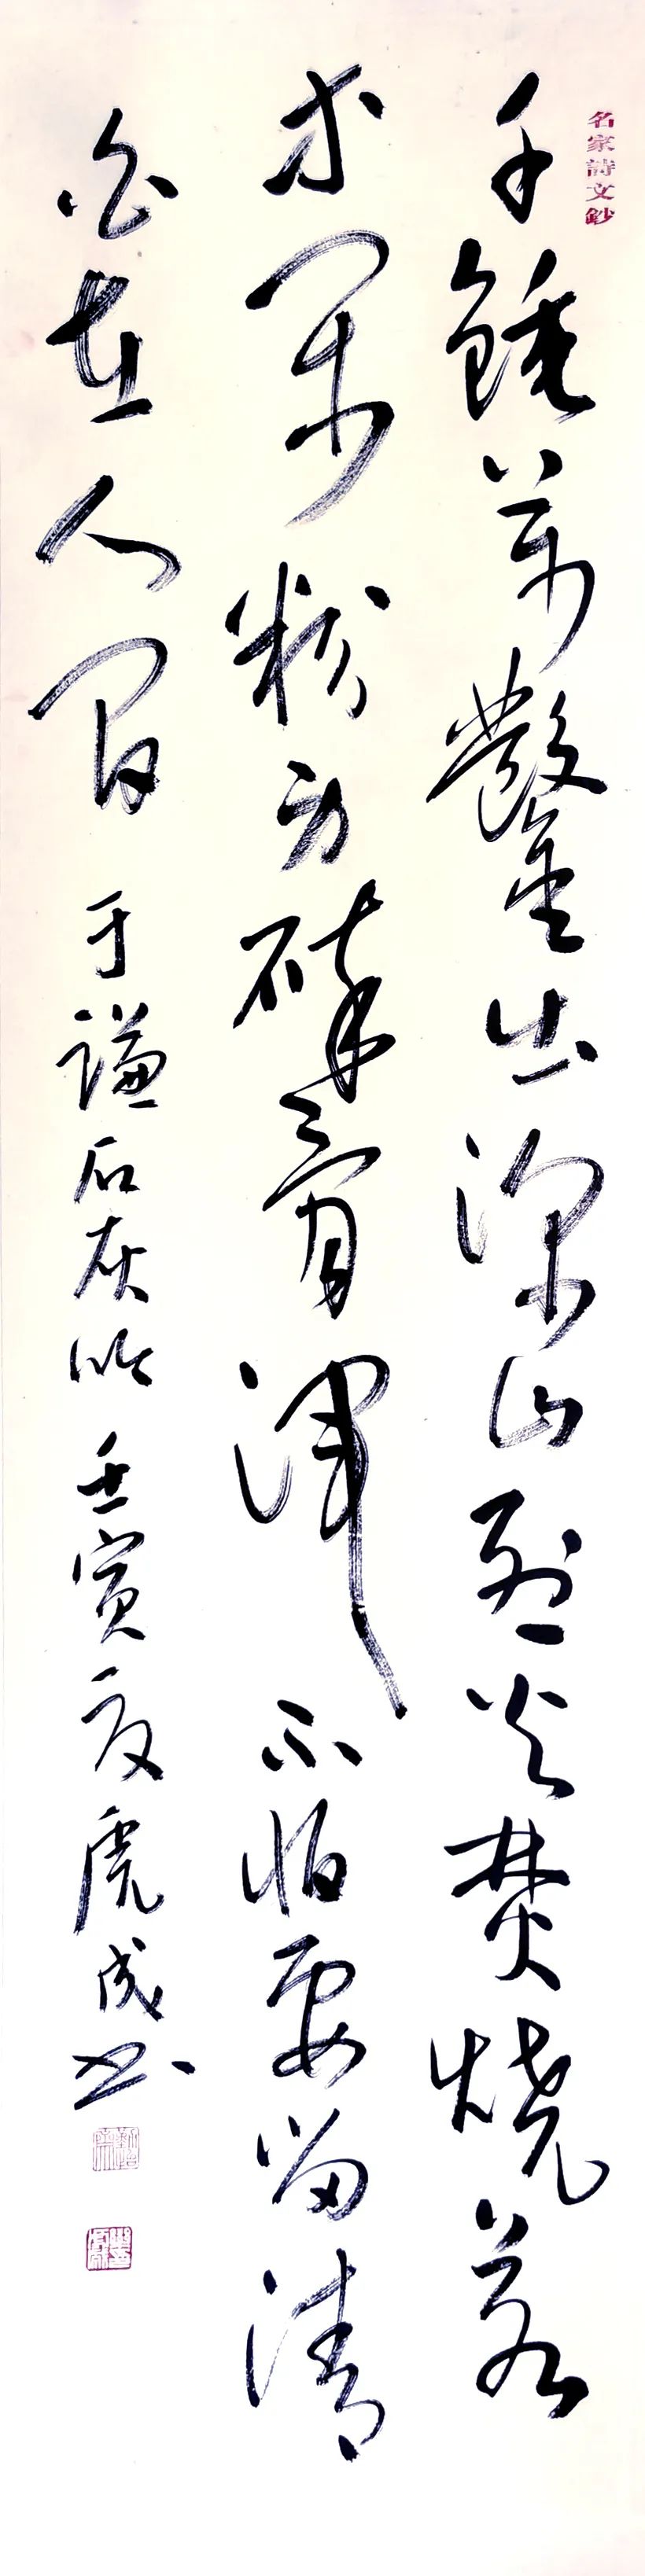 名家詩文鈔
千錘萬鑿出深山烈火焚燒若
等閒粉身碎骨渾不怕要留清
白在人間 于謙石灰吟 壬寅夏虎成书